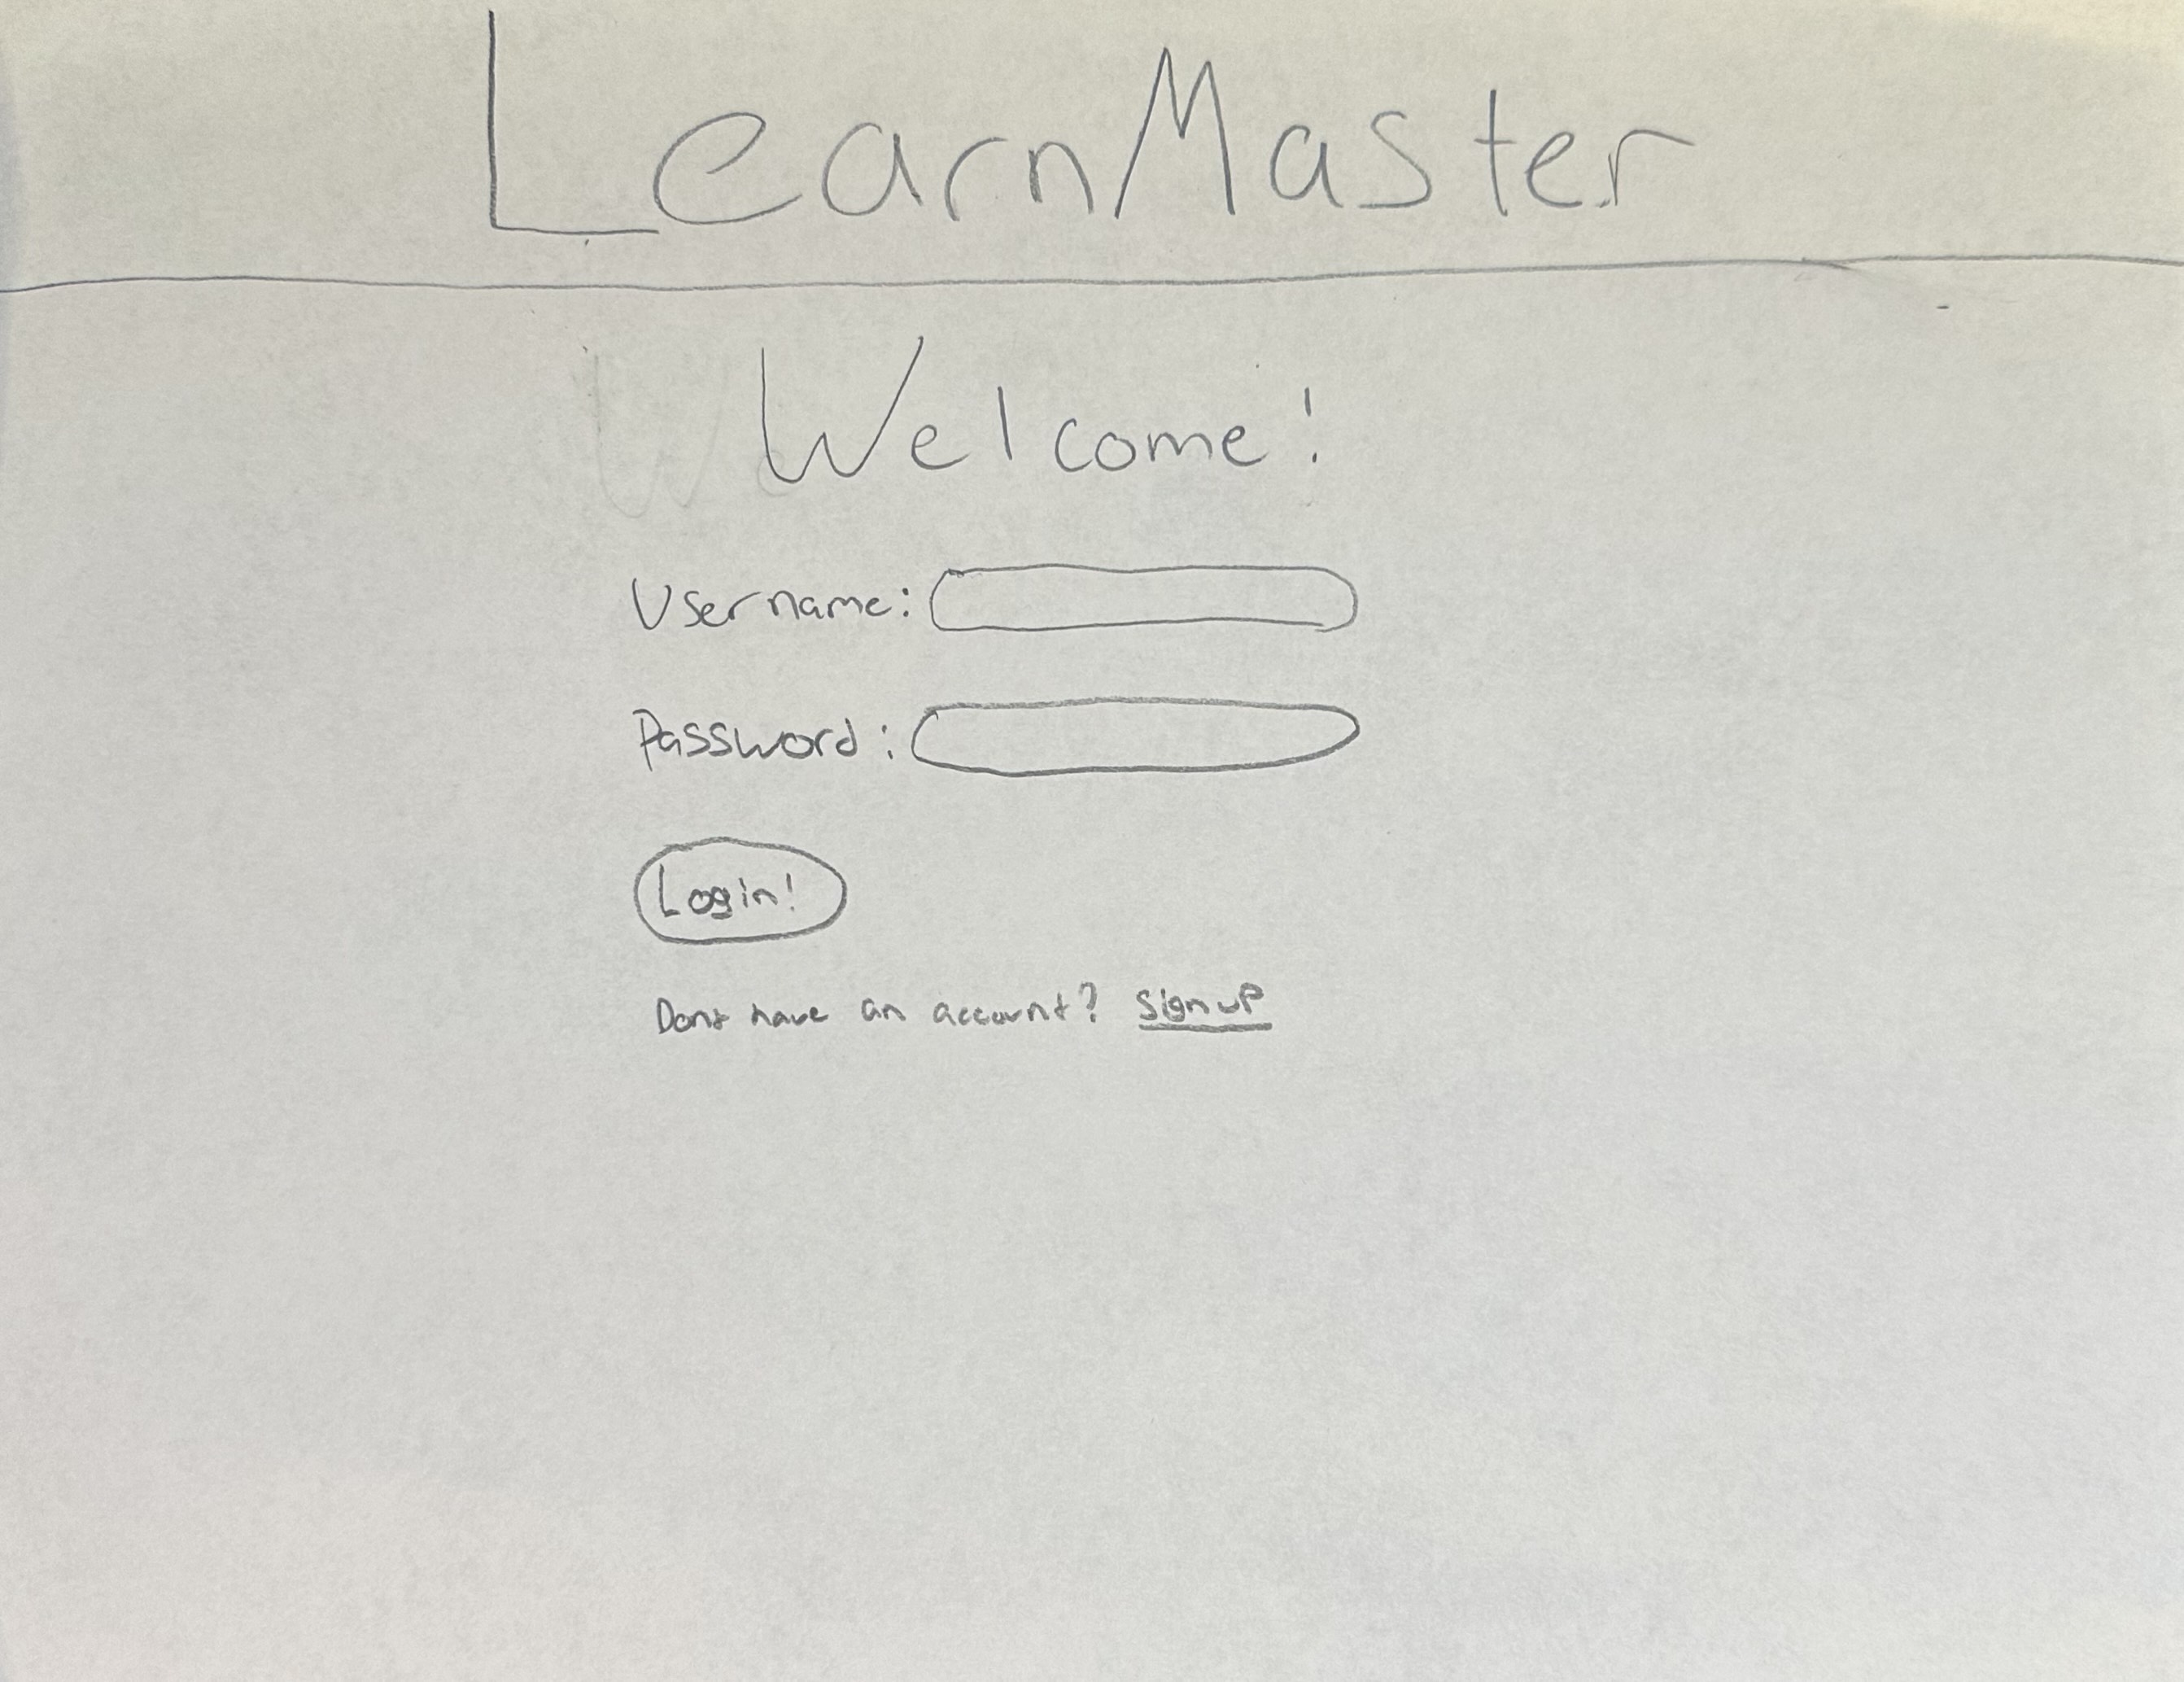 LearnMaster
Welcome!
Username:
Password:
Login!
Dont have an account? Sign up